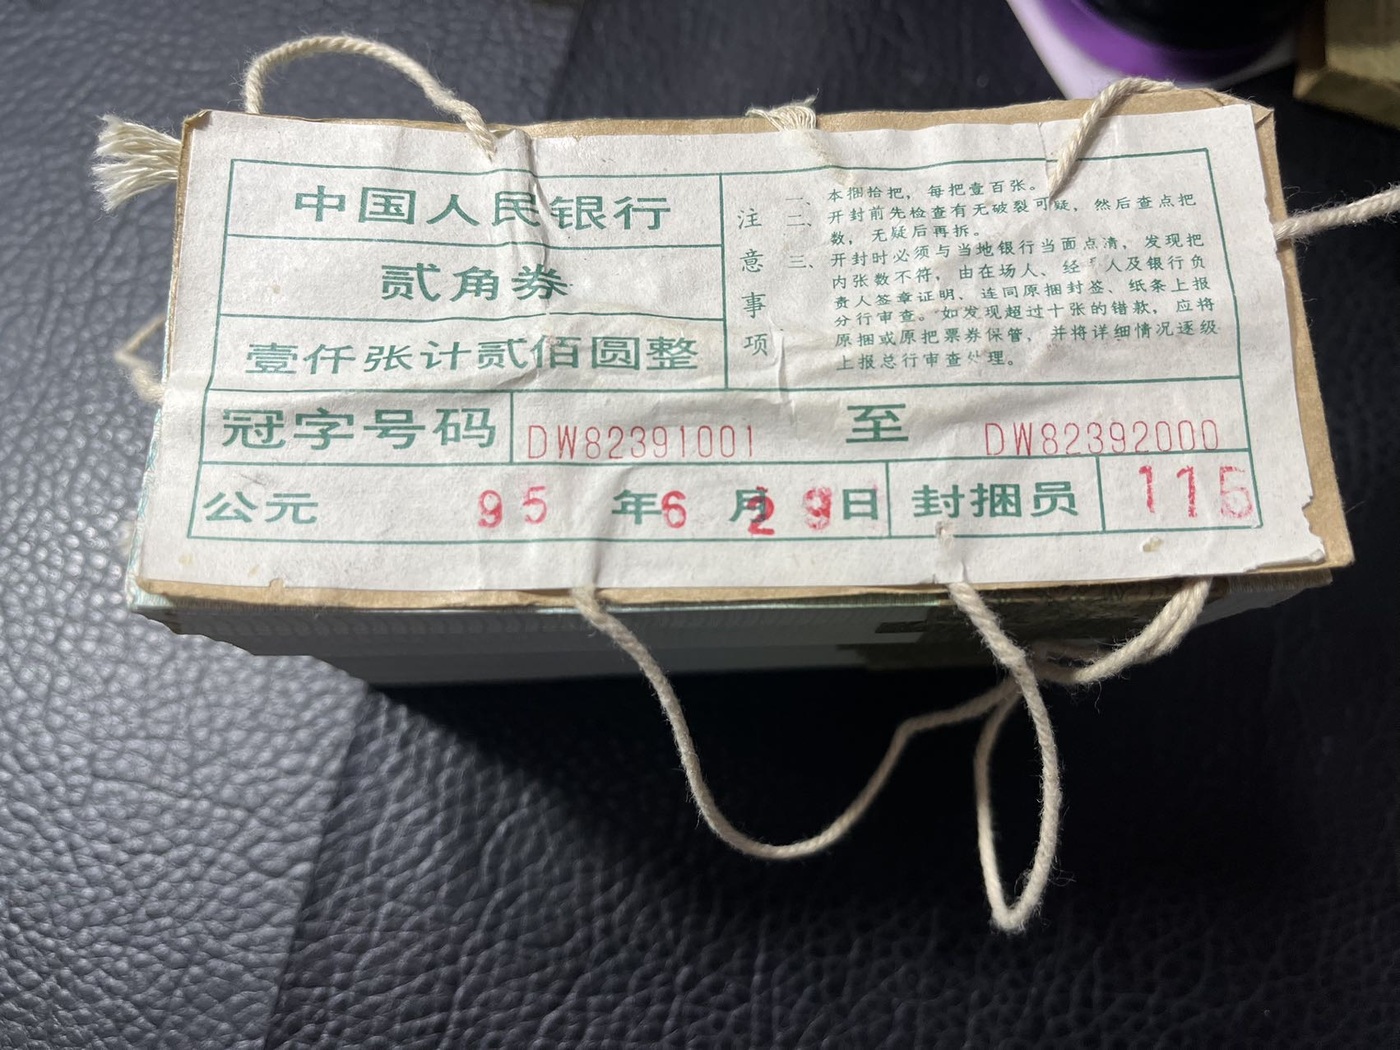 中国人民银行
贰角券
壹仟张计贰佰圆整
注意事项
一、本捆拾把，每把壹百张。
二、开封前先检查有无破裂可疑，然后查点把
数，无疑后再拆。
三、开封时必须与当地银行当面点清，发现把
内张数不符，由在场人、经 人及银行负
责人签章证明、连同原捆封签、纸条上报
分行审查。如发现超过十张的错款，应将
原捆或原把票券保管，并将详细情况逐级
上报总行审查处理。
冠字号码 DW82391001 至 DW82392000
公元 95 年 6 月 29 日 封捆员 115